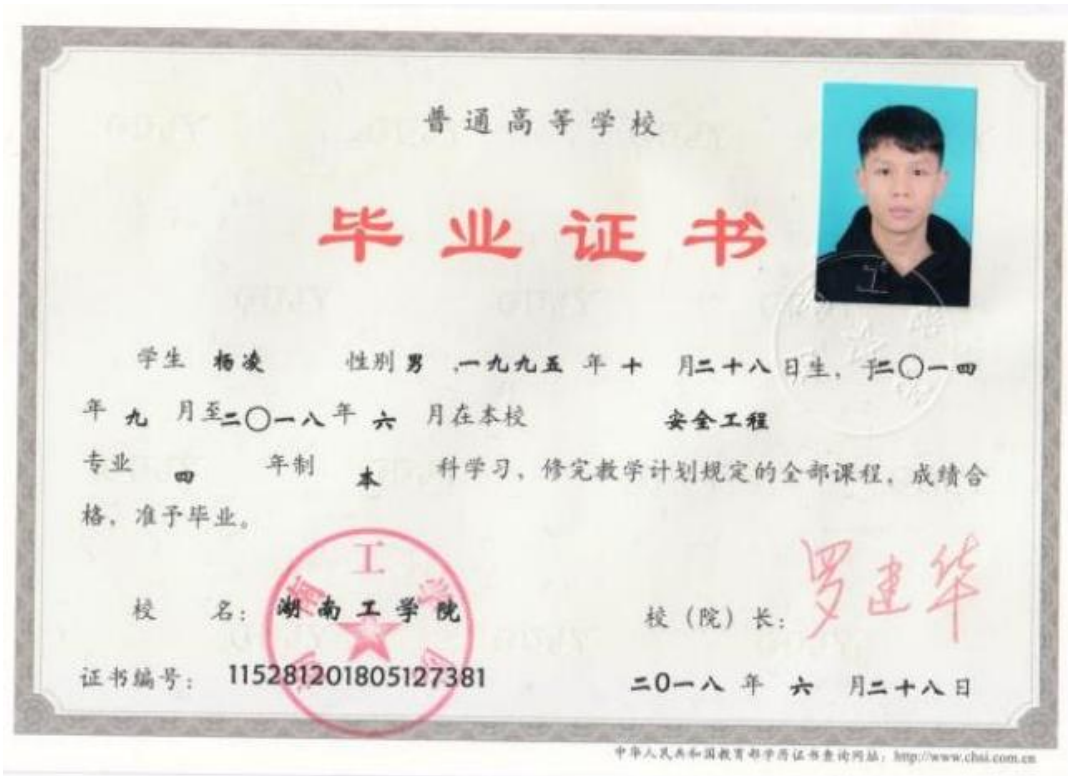 普通高等学校
毕业证书
学生 杨凌 性别 男 ,一九九五 年 十 月二十八日生，于二〇一四
年 九 月至二〇一八年 六 月在本校 安全工程
专业 四 年制 本 科学习，修完教学计划规定的全部课程，成绩合
格，准予毕业。
湖南工学院
校 名： 湖南工学院 校（院）长： 罗建华
证书编号： 115281201805127381 二0一八 年 六 月二十八日
中华人民共和国教育部学历证书查询网址：http://www.chsi.com.cn